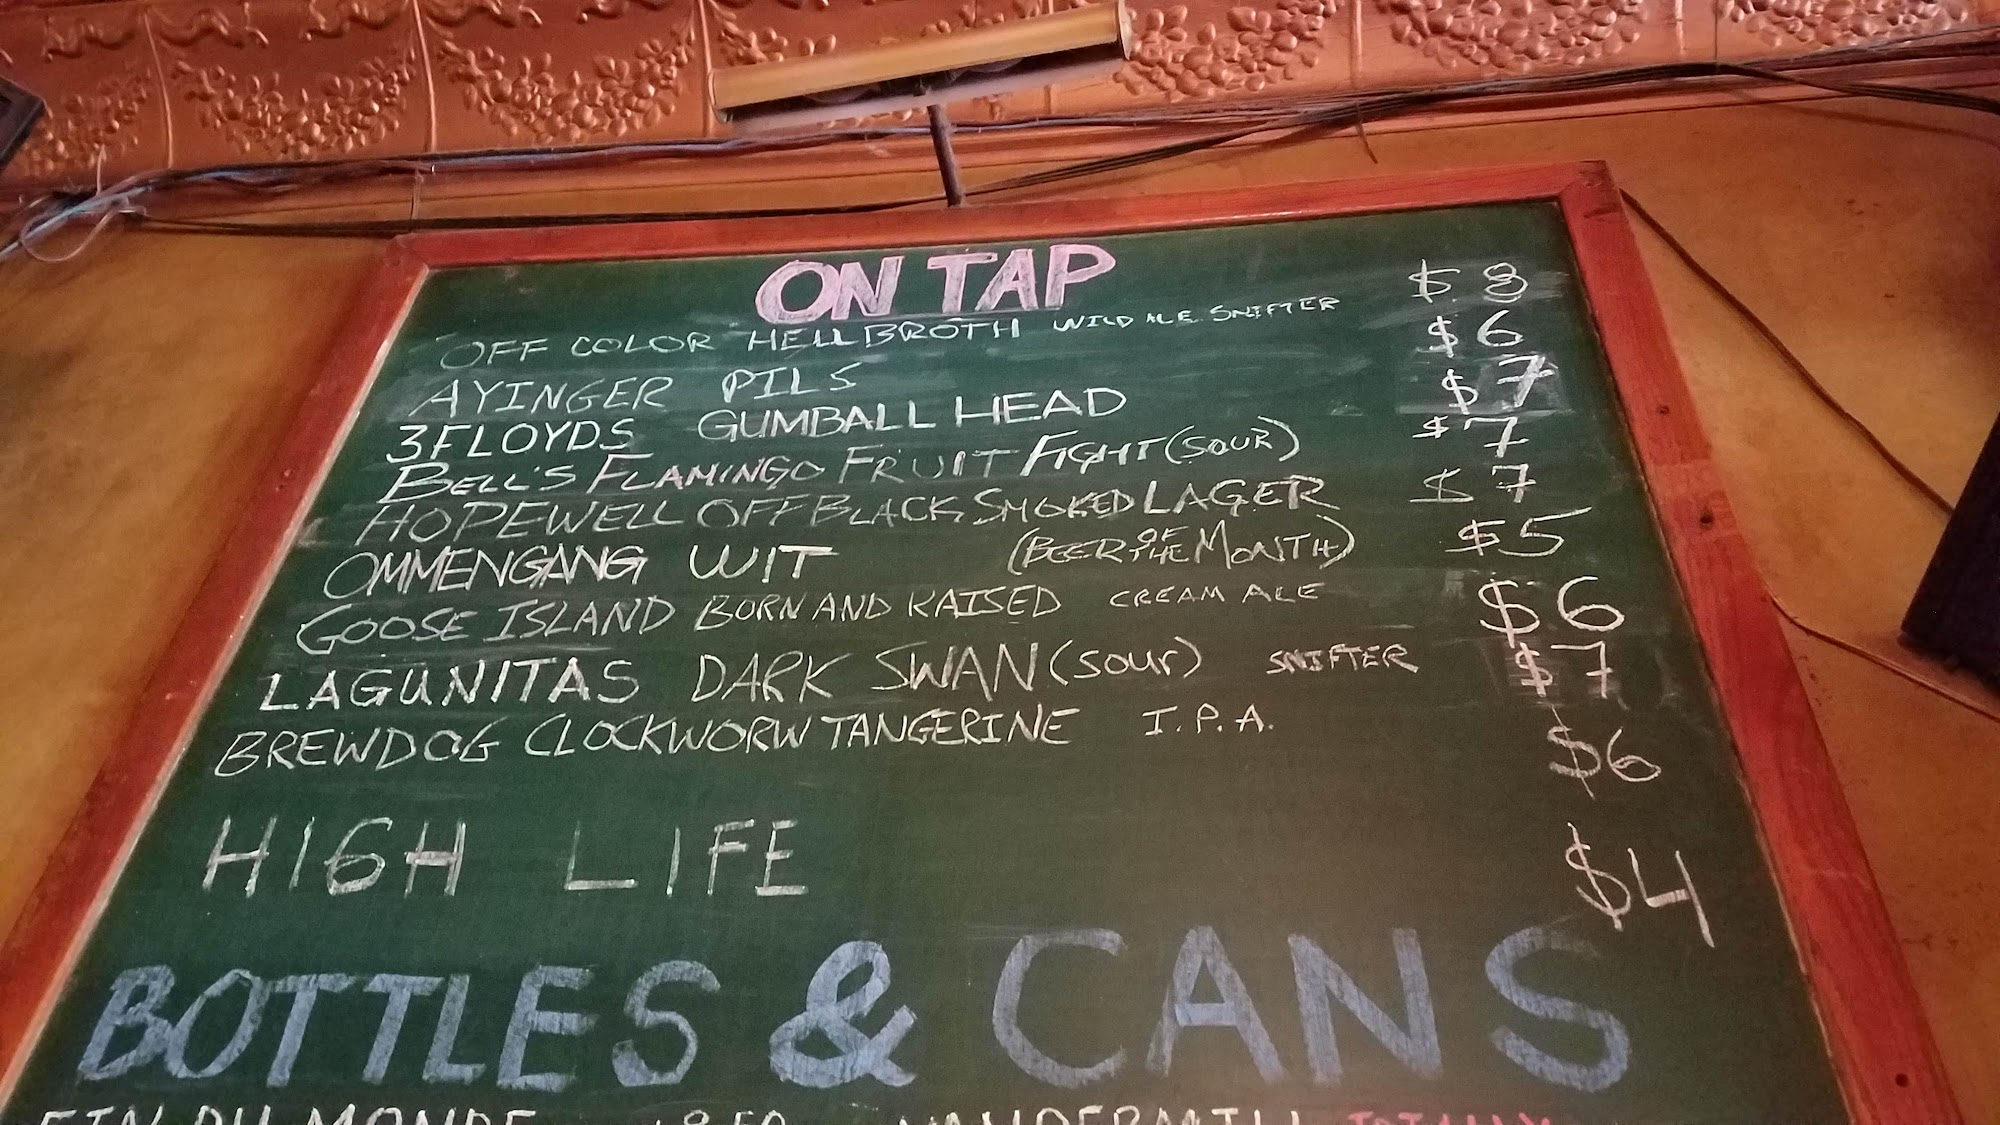 ON TAP
OFF COLOR HELLBROTH WILD ALE SNIFTER $8
AYINGER PILS $6
3FLOYDS GUMBALL HEAD $7
BELL'S FLAMINGO FRUIT FIGHT (SOUR) $7
HOPEWELL OFF BLACK SMOKED LAGER $7
OMMENGANG WIT (BEER OF THE MONTH) $5
GOOSE ISLAND BORN AND RAISED CREAM ALE $6
LAGUNITAS DARK SWAN (SOUR) SNIFTER $7
BREWDOG CLOCKWORW TANGERINE I.P.A. $6
HIGH LIFE $4
BOTTLES & CANS
FIN DU MONDE